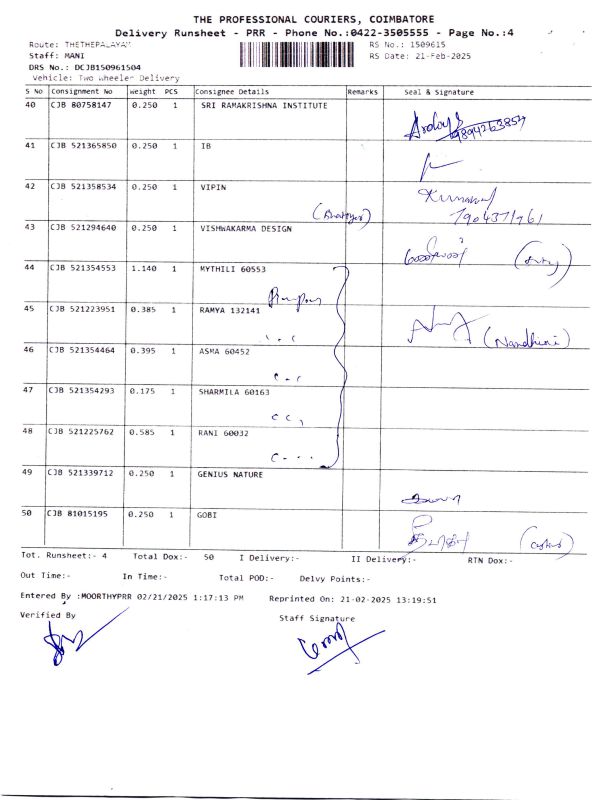 THE PROFESSIONAL COURIERS, COIMBATORE
Delivery Runsheet - PRR - Phone No.:0422-3505555 - Page No.:4
Route: THETHEPALAYAM RS No.: 1509615
Staff: MANI RS Date: 21-Feb-2025
DRS No.: DCJB150961504
Vehicle: Two Wheeler Delivery
S No Consignment No Weight PCS Consignee Details Remarks Seal & Signature
40 CJB 80758147 0.250 1 SRI RAMAKRISHNA INSTITUTE
9894263854
41 CJB 521365850 0.250 1 IB
42 CJB 521358534 0.250 1 VIPIN
7904371961
43 CJB 521294640 0.250 1 VISHWAKARMA DESIGN
44 CJB 521354553 1.140 1 MYTHILI 60553
45 CJB 521223951 0.385 1 RAMYA 132141
(Nandhini)
46 CJB 521354464 0.395 1 ASMA 60452
47 CJB 521354293 0.175 1 SHARMILA 60163
48 CJB 521225762 0.585 1 RANI 60032
49 CJB 521339712 0.250 1 GENIUS NATURE
50 CJB 81015195 0.250 1 GOBI
Tot. Runsheet:- 4 Total Dox:- 50 I Delivery:- II Delivery:- RTN Dox:-
Out Time:- In Time:- Total POD:- Delvy Points:-
Entered By :MOORTHYPRR 02/21/2025 1:17:13 PM Reprinted On: 21-02-2025 13:19:51
Verified By Staff Signature